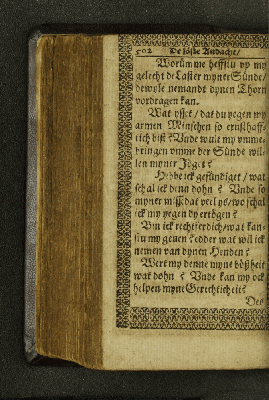 502 De söste Andacht/
Worümme heffstu up my
gelecht de Laster myner Sünde/
dewyle nemandt dynen Thorn
vordragen kan.
Wat ysset / dat du yegen my
armen Minschen so ernsthaff-
tich bist? Unde wult my umme-
bringen umme der Sünde wil-
len myner Jöget?
Hebbe ick gesündiget / wat
schal ick denn dohn? Unde so
myner Missdat veel ys/wo schal
ick my yegen dy ertögen?
Bin ick rechtferdich/wat kan-
stu my geven? edder wat wil ick
nemen van dynen Henden?
Wert my denne myne bößheit
wat dohn? Unde kan my ock
helpen myne Gerechticheit?
Des